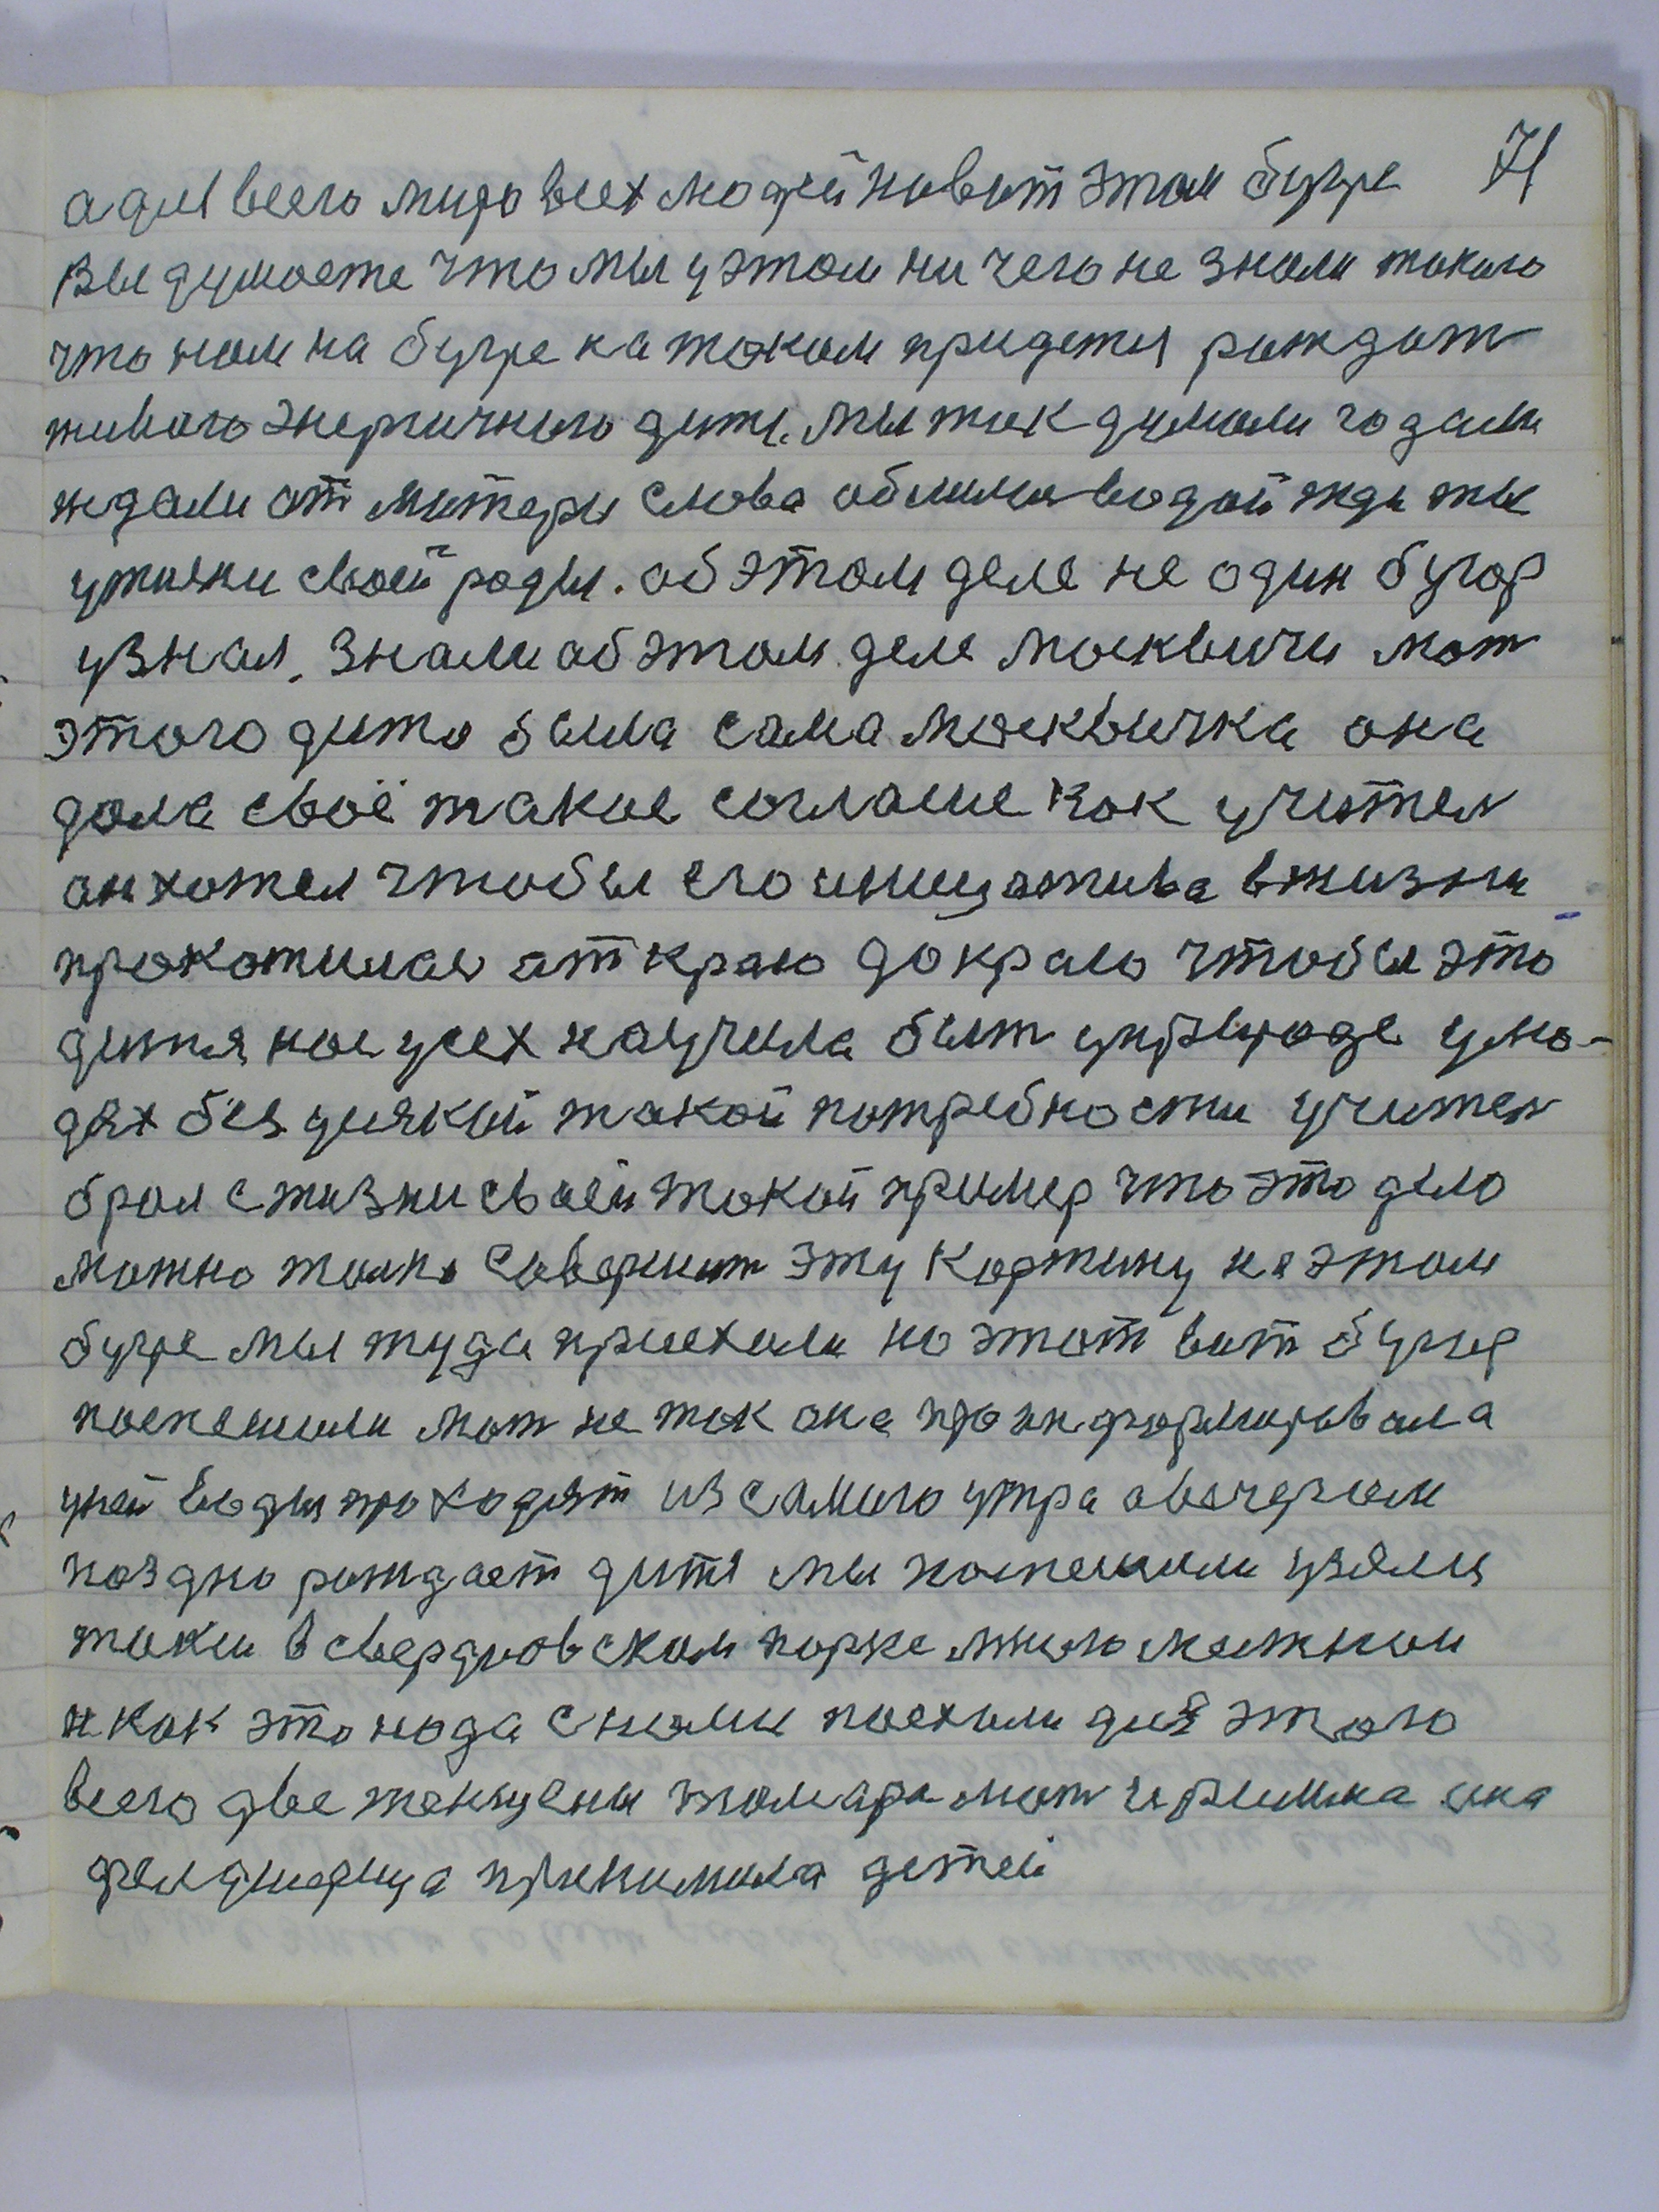 71
а для всего миро всех людей на вот этом бугре
Вы думаете что мы у этом ни чего не знали такого
что нам на бугре на таком придется рождат
живого энергичного дитя. мы так думали годами
ждали от матери слова облила водой жды ты
утички своей роды. об этом деле не один бугор
узнал. знали об этом деле москвичи мат
этого дитя была сама москвичка она
дала своё такое согласие как учител
он хотел чтобы его инициатива в жизни
прокатилас от краю до краю чтобы это
дитя нас усех научила быт уприроде у лю-
дях без усякий такой потребности учител
брал с жизни своей такой пример что это дело
можно толко совершит эту картину на этом
бугре мы туда приехали на этот вот бугор
поспешили мат не так она проинформировала
у ней воды проходят из самого утра а вечером
поздно рождает дитя мы поспешили узяли
такси в свердловском парке
и как это нада с нами поехали для этого
всего две женщены тамара мат она
фелдшерица принимала детей